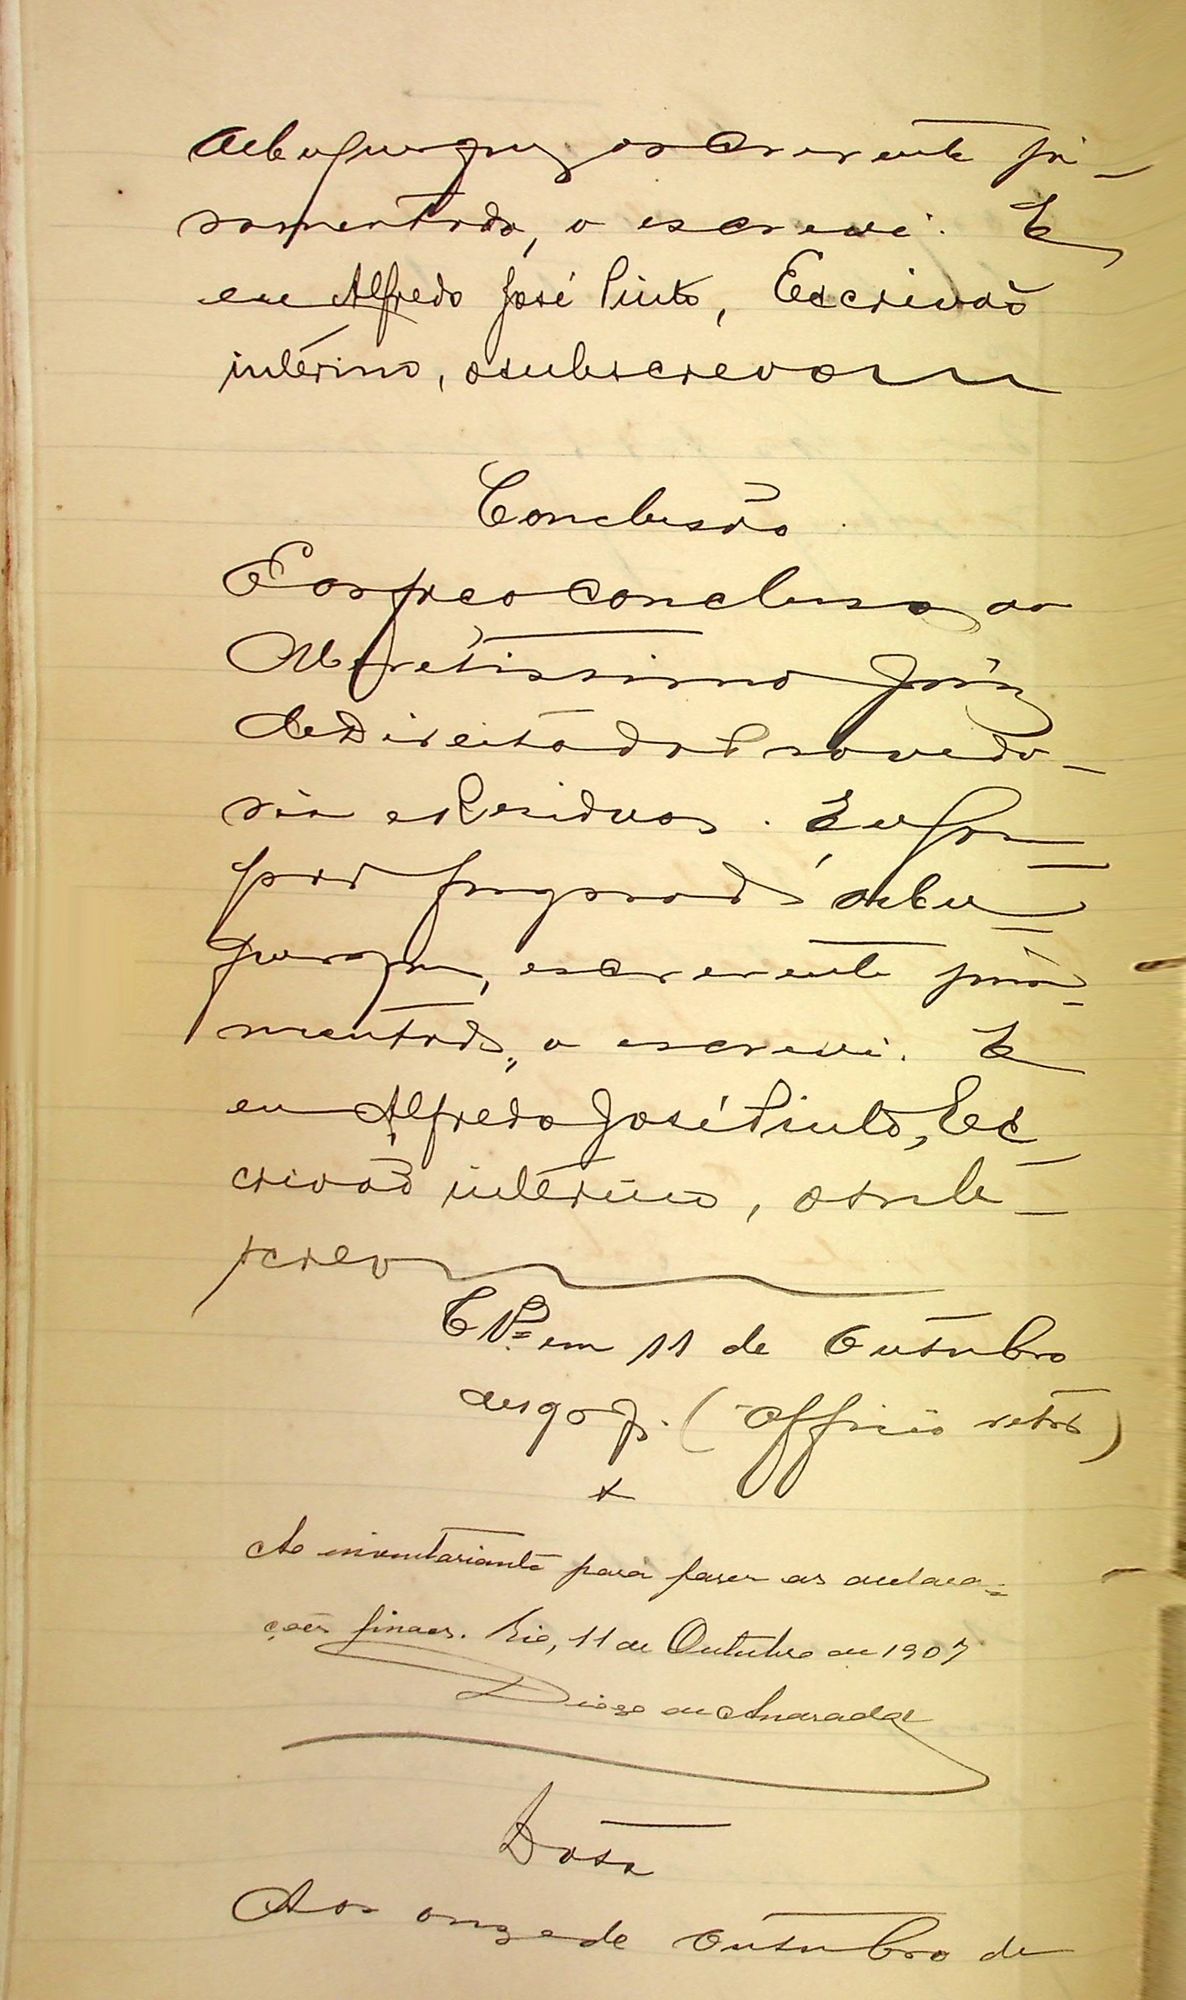 Albuquerque, escrevente ju-
ramentado, o escrevi. E
eu Alfredo José Pinto, Escrivão
interino, o subscrevo
Conclusão
E os faço conclusos ao
Meretissimo Juiz
de Direito da Provedo-
ria e Residuos. Eu
Albu-
querque, escrevente jura-
mentado, o escrevi. E
eu Alfredo José Pinto, Es-
crivão interino, o sub-
screvo
Cls. em 11 de Outubro
de 1907. (Officio retro)
x
Ao inventariante para fazer as declara-
ções finaes. Rio, 11 de Outubro de 1907
Diogo de Andrade
Data
Aos onze de Outubro de